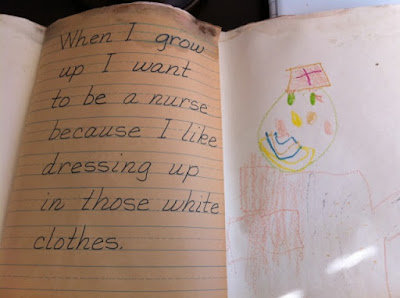 When I grow
up I want
to be a nurse
because I like
dressing up
in those white
clothes.